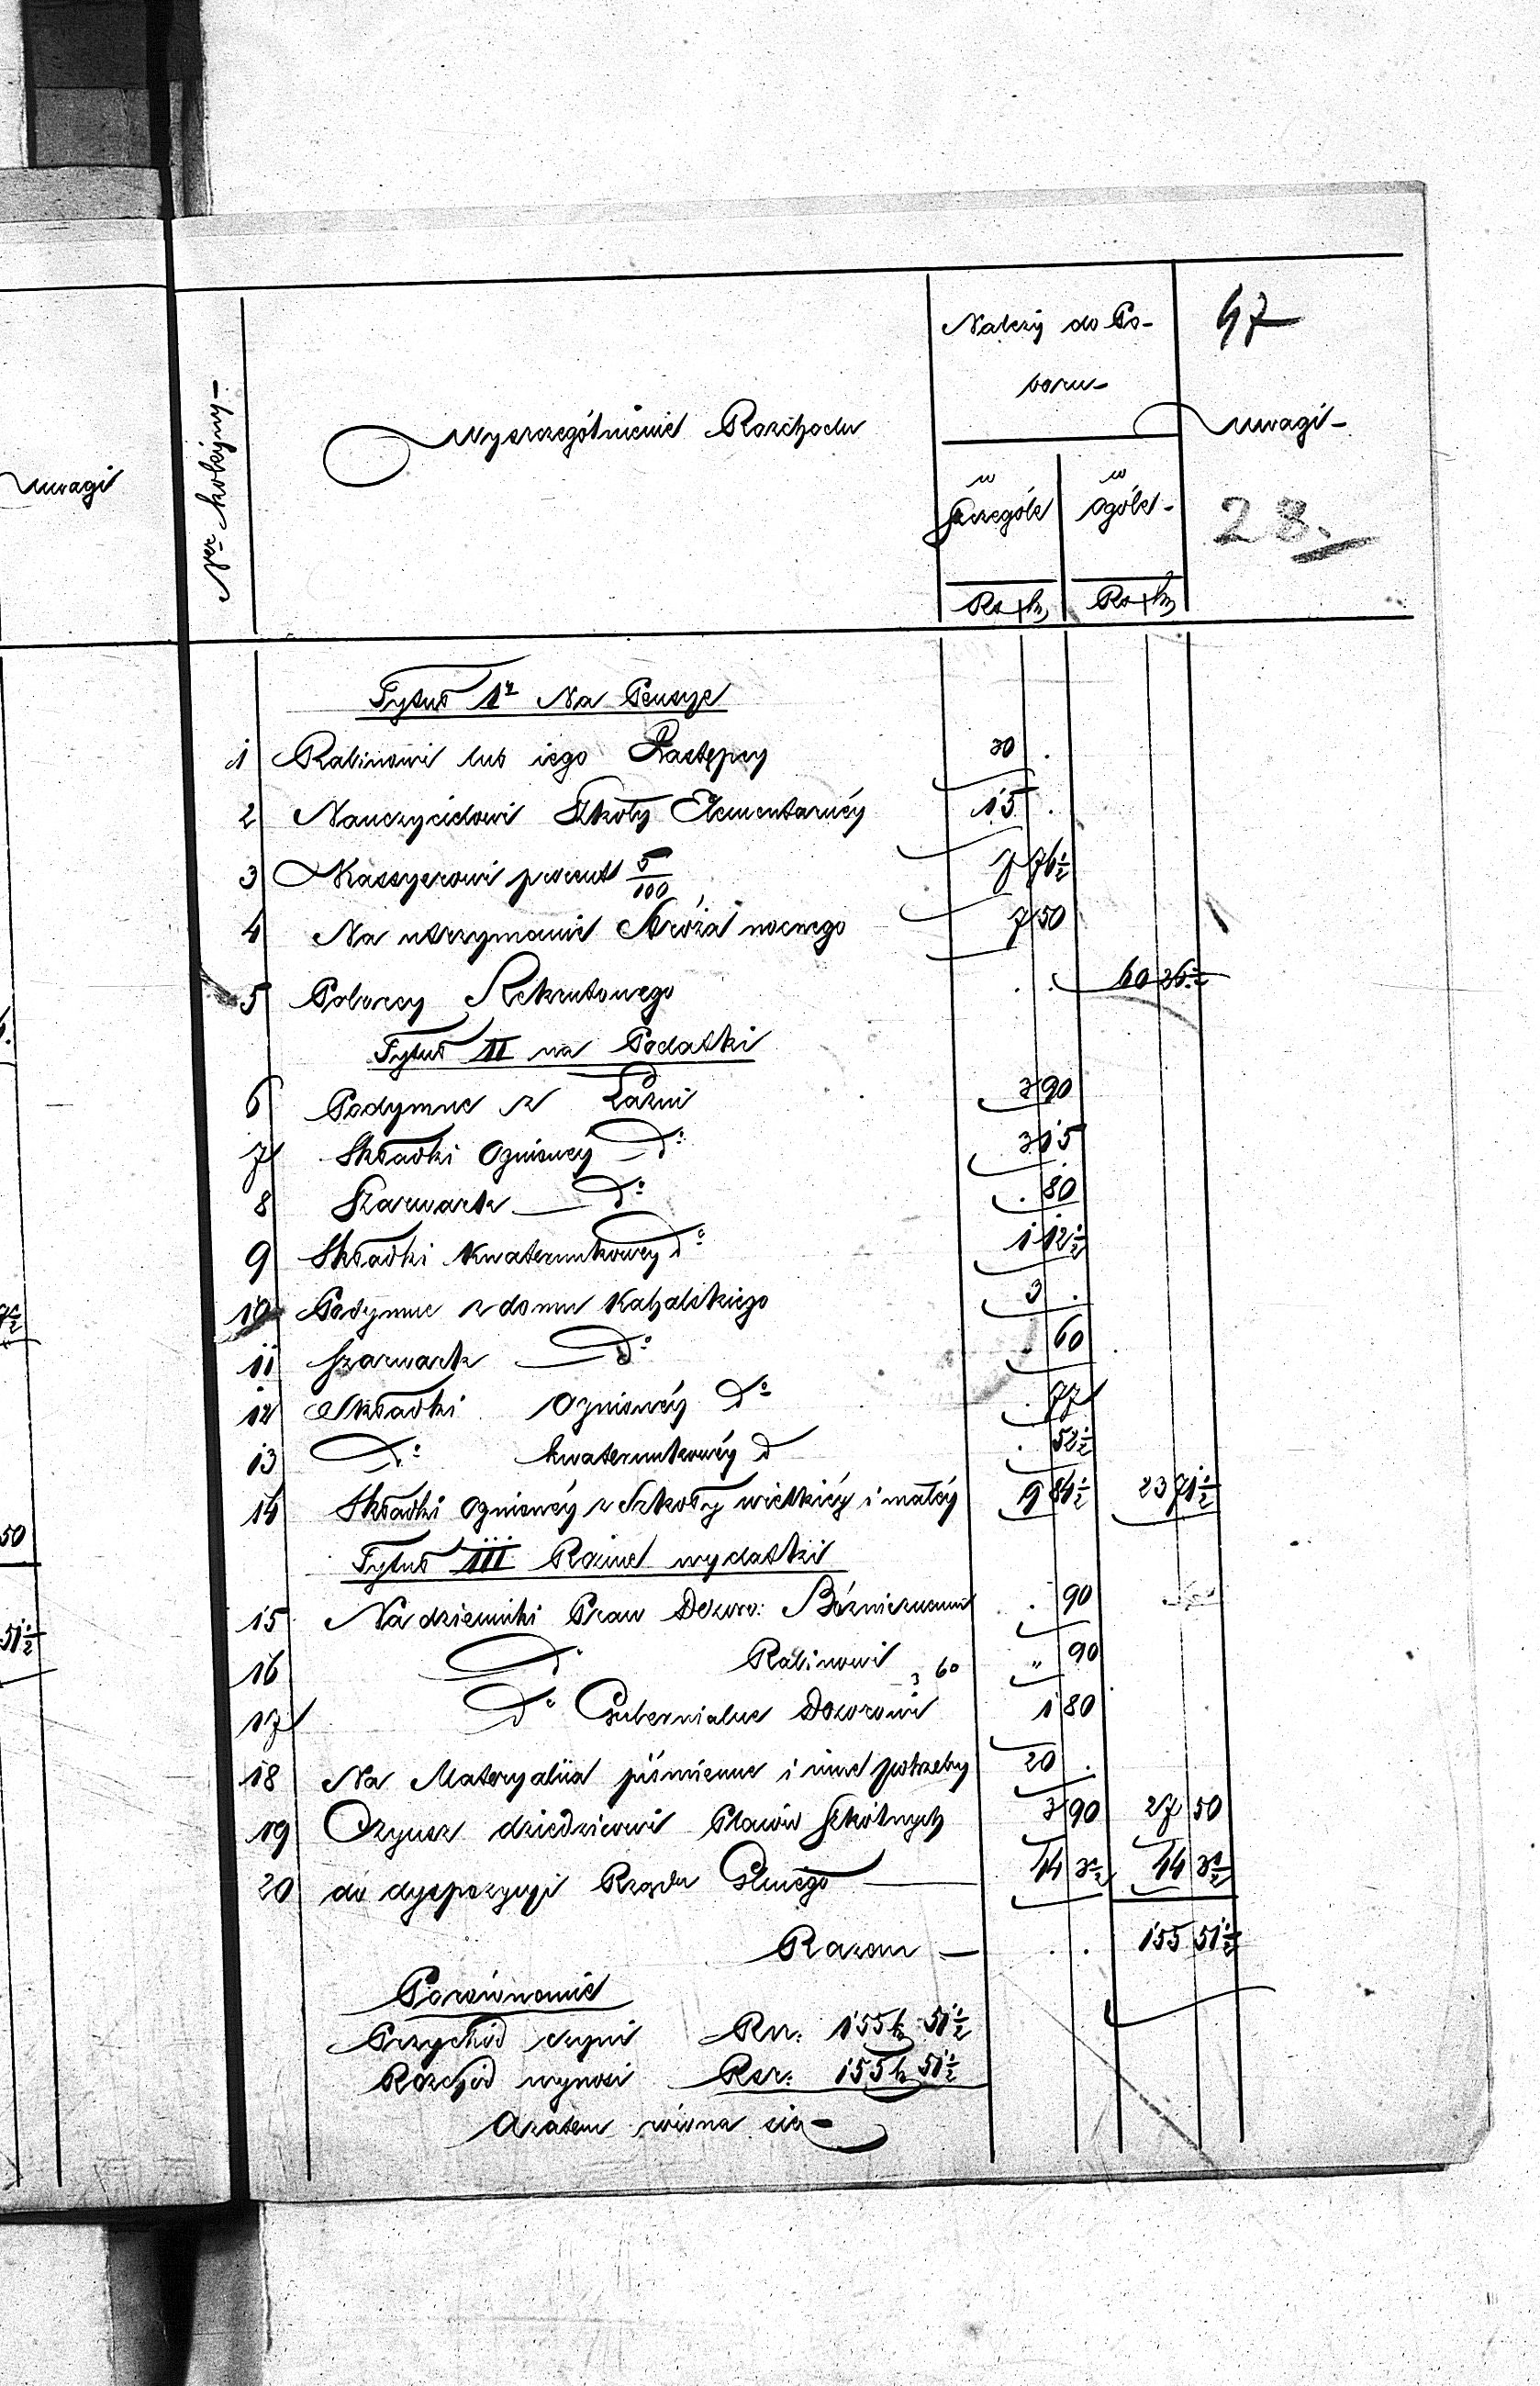 47
Należy do Po-
boru-
Uwagi
Ner kolejny-
Wyszczególnienie Rozchodu
Uwagi-
w
szczególe
w
ogóle-
28.
Rs kp
Rs kp
Tytuł 1r Na Pensye
1 Rabinowi lub iego Zastępcy 30 .
2 Nauczycielowi Szkoły Elementarnéy 15 .
3 Kassyerowi procent 5/100 7 76½
4 Na utrzymanie Stróża nocnego 7 50
5 Poborcy Rekrutowego . . 60 26½
Tytuł II na Podatki
6 Podymne z Łazni 3 90
7 Składki Ogniowéy Do 3 15
8 Szarwark Do . 80
9 Składki Kwaterunkowey do 1 12½
10 Podymne z domu Kahalskiego 3 .
11 Szarwark Do . 60
12 Składki Ogniowéy Do . 77
13 Do kwaterunkowéy d . 52½
14 Składki Ogniowéy z Szkoły wielkiéy i małéy 9 84½ 23 71½
Tytuł III Rożne wydatki
15 Na dzienniki Praw Dozoro: Bóżniczemu . 90
50
16 Do Rabinowi " 90
51½
3 60
17 Do Gubernialne Dozorowi 1 80
18 Na Materyalia piśmienne i inne potrzeby 20 .
19 Czynsz dziedzicowi Placów Szkólnych 3 90 27 50
20 do dyspozycyi Rządu Glnego 44 3½ 44 3½
Razem - . . 155 51½
Porównanie
Przychód czyni Rsr. 155 k 51½
Rozchód wynosi Rsr: 155 k 51½
Azatem równa się-